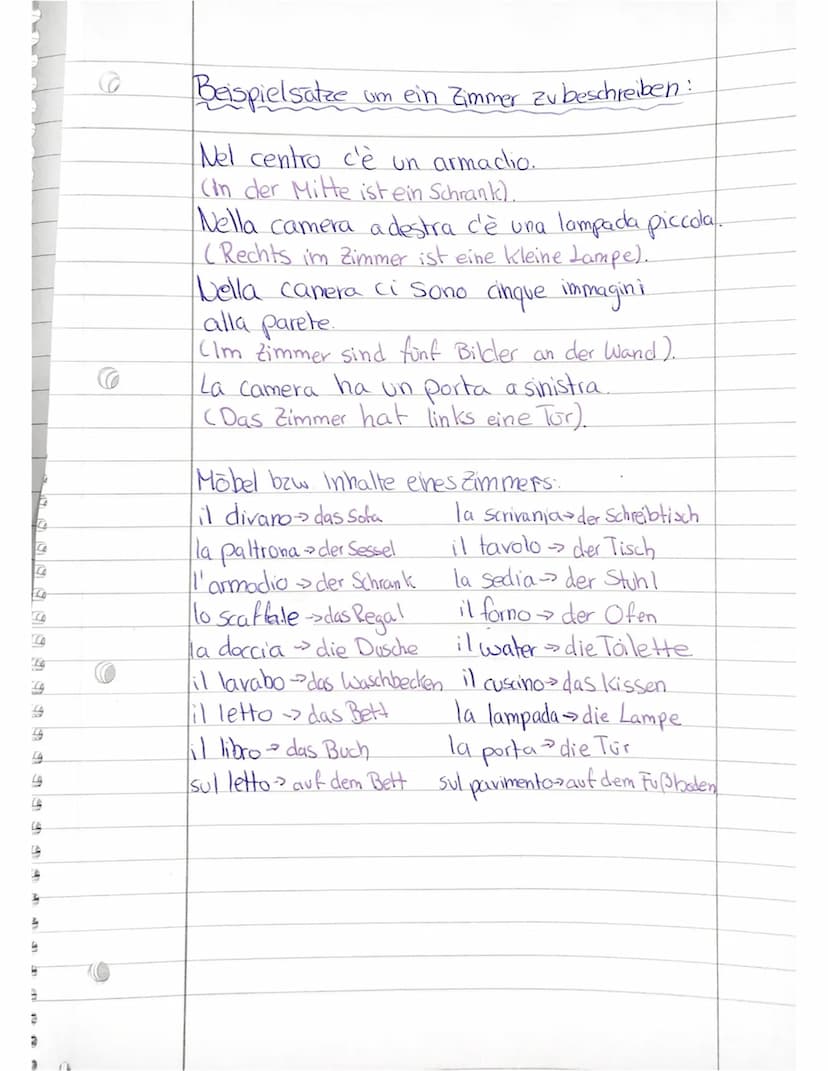 Beispielsätze um ein Zimmer zu beschreiben:
Nel centro c'è un armadio.
(In der Mitte ist ein Schrank).
Nella camera a destra c'è una lampada piccola.
(Rechts im Zimmer ist eine kleine Lampe).
Nella camera ci sono cinque immagini
alla parete.
(Im Zimmer sind fünf Bilder an der Wand).
La camera ha un porta a sinistra.
(Das Zimmer hat links eine Tür).
Möbel bzw Inhalte eines Zimmers:
il divano → das Sofa la scrivania → der Schreibtisch
la paltrona → der Sessel il tavolo → der Tisch
l'armadio → der Schrank la sedia → der Stuhl
lo scaffale → das Regal il forno → der Ofen
la doccia → die Dusche il water → die Toilette
il lavabo → das Waschbecken il cuscino → das Kissen
il letto → das Bett la lampada → die Lampe
il libro → das Buch la porta → die Tür
sul letto → auf dem Bett sul pavimento → auf dem Fußboden